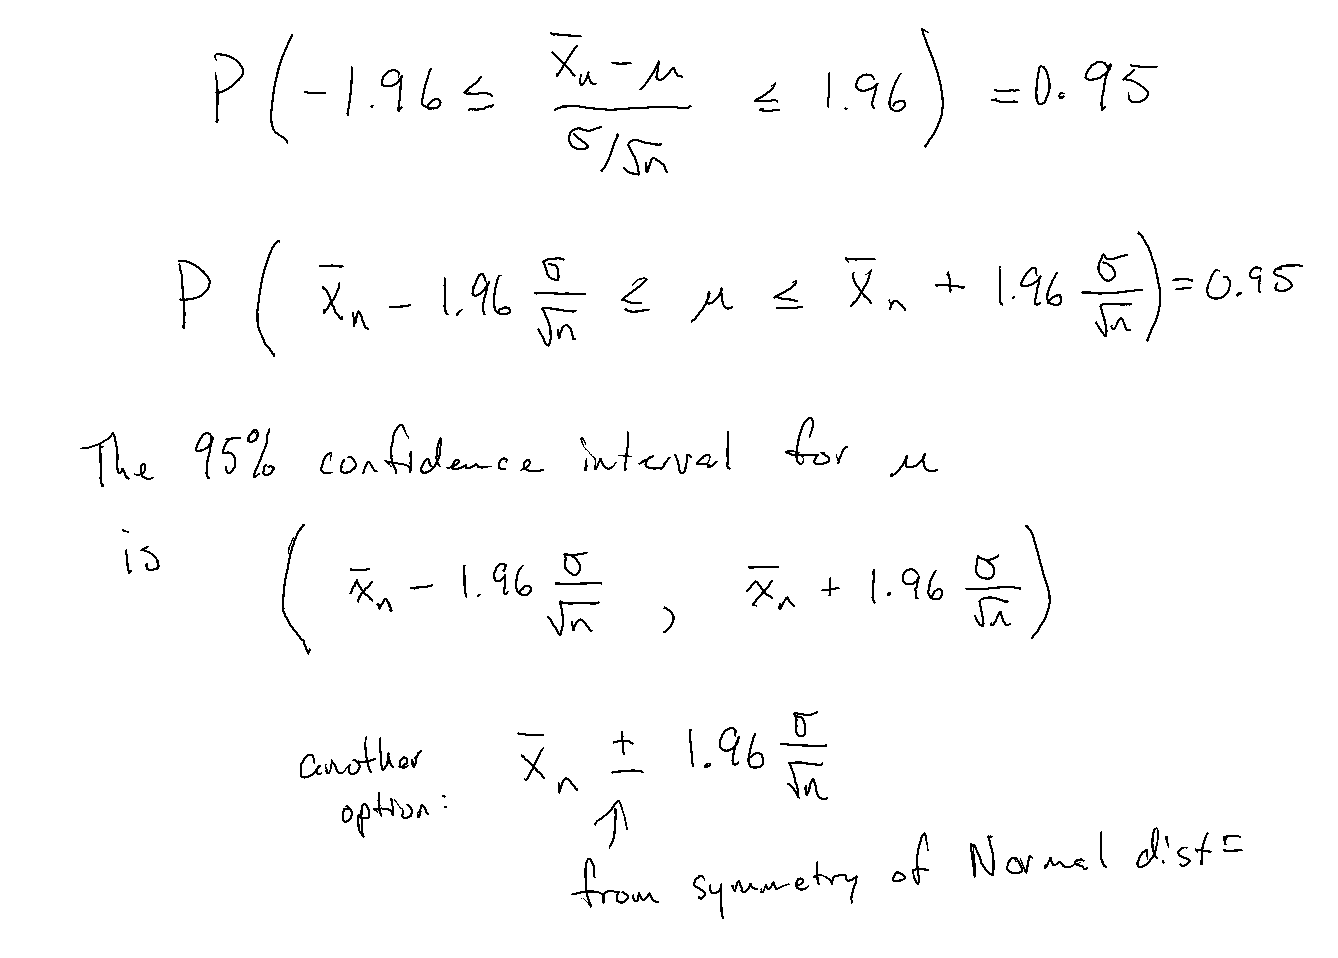 P(-1.96 ≤ (x̄ₙ - μ)/(σ/√n) ≤ 1.96) = 0.95
P(x̄ₙ - 1.96 σ/√n ≤ μ ≤ x̄ₙ + 1.96 σ/√n) = 0.95
The 95% confidence interval for μ
is (x̄ₙ - 1.96 σ/√n , x̄ₙ + 1.96 σ/√n)
another
option: x̄ₙ ± 1.96 σ/√n
↑
from symmetry of Normal distⁿ